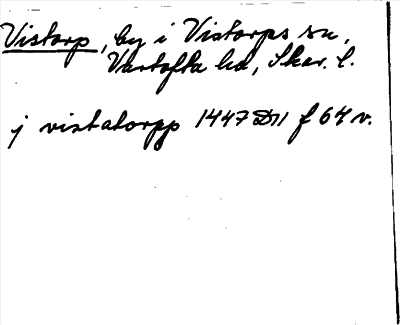 Vistorp, by i Vistorps sn,
Vartofta hd, Skar. l.
j vistatorpp 1447 D11 f 64 v.